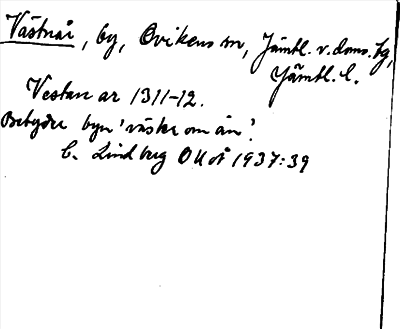 Västnår, by, Ovikens sn, Jämtl. v. doms. tg,
Jämtl. l.
Vestan ar 1311-12.
Betyder byn 'väster om ån'.
C. Lindberg OUÅ 1937:39